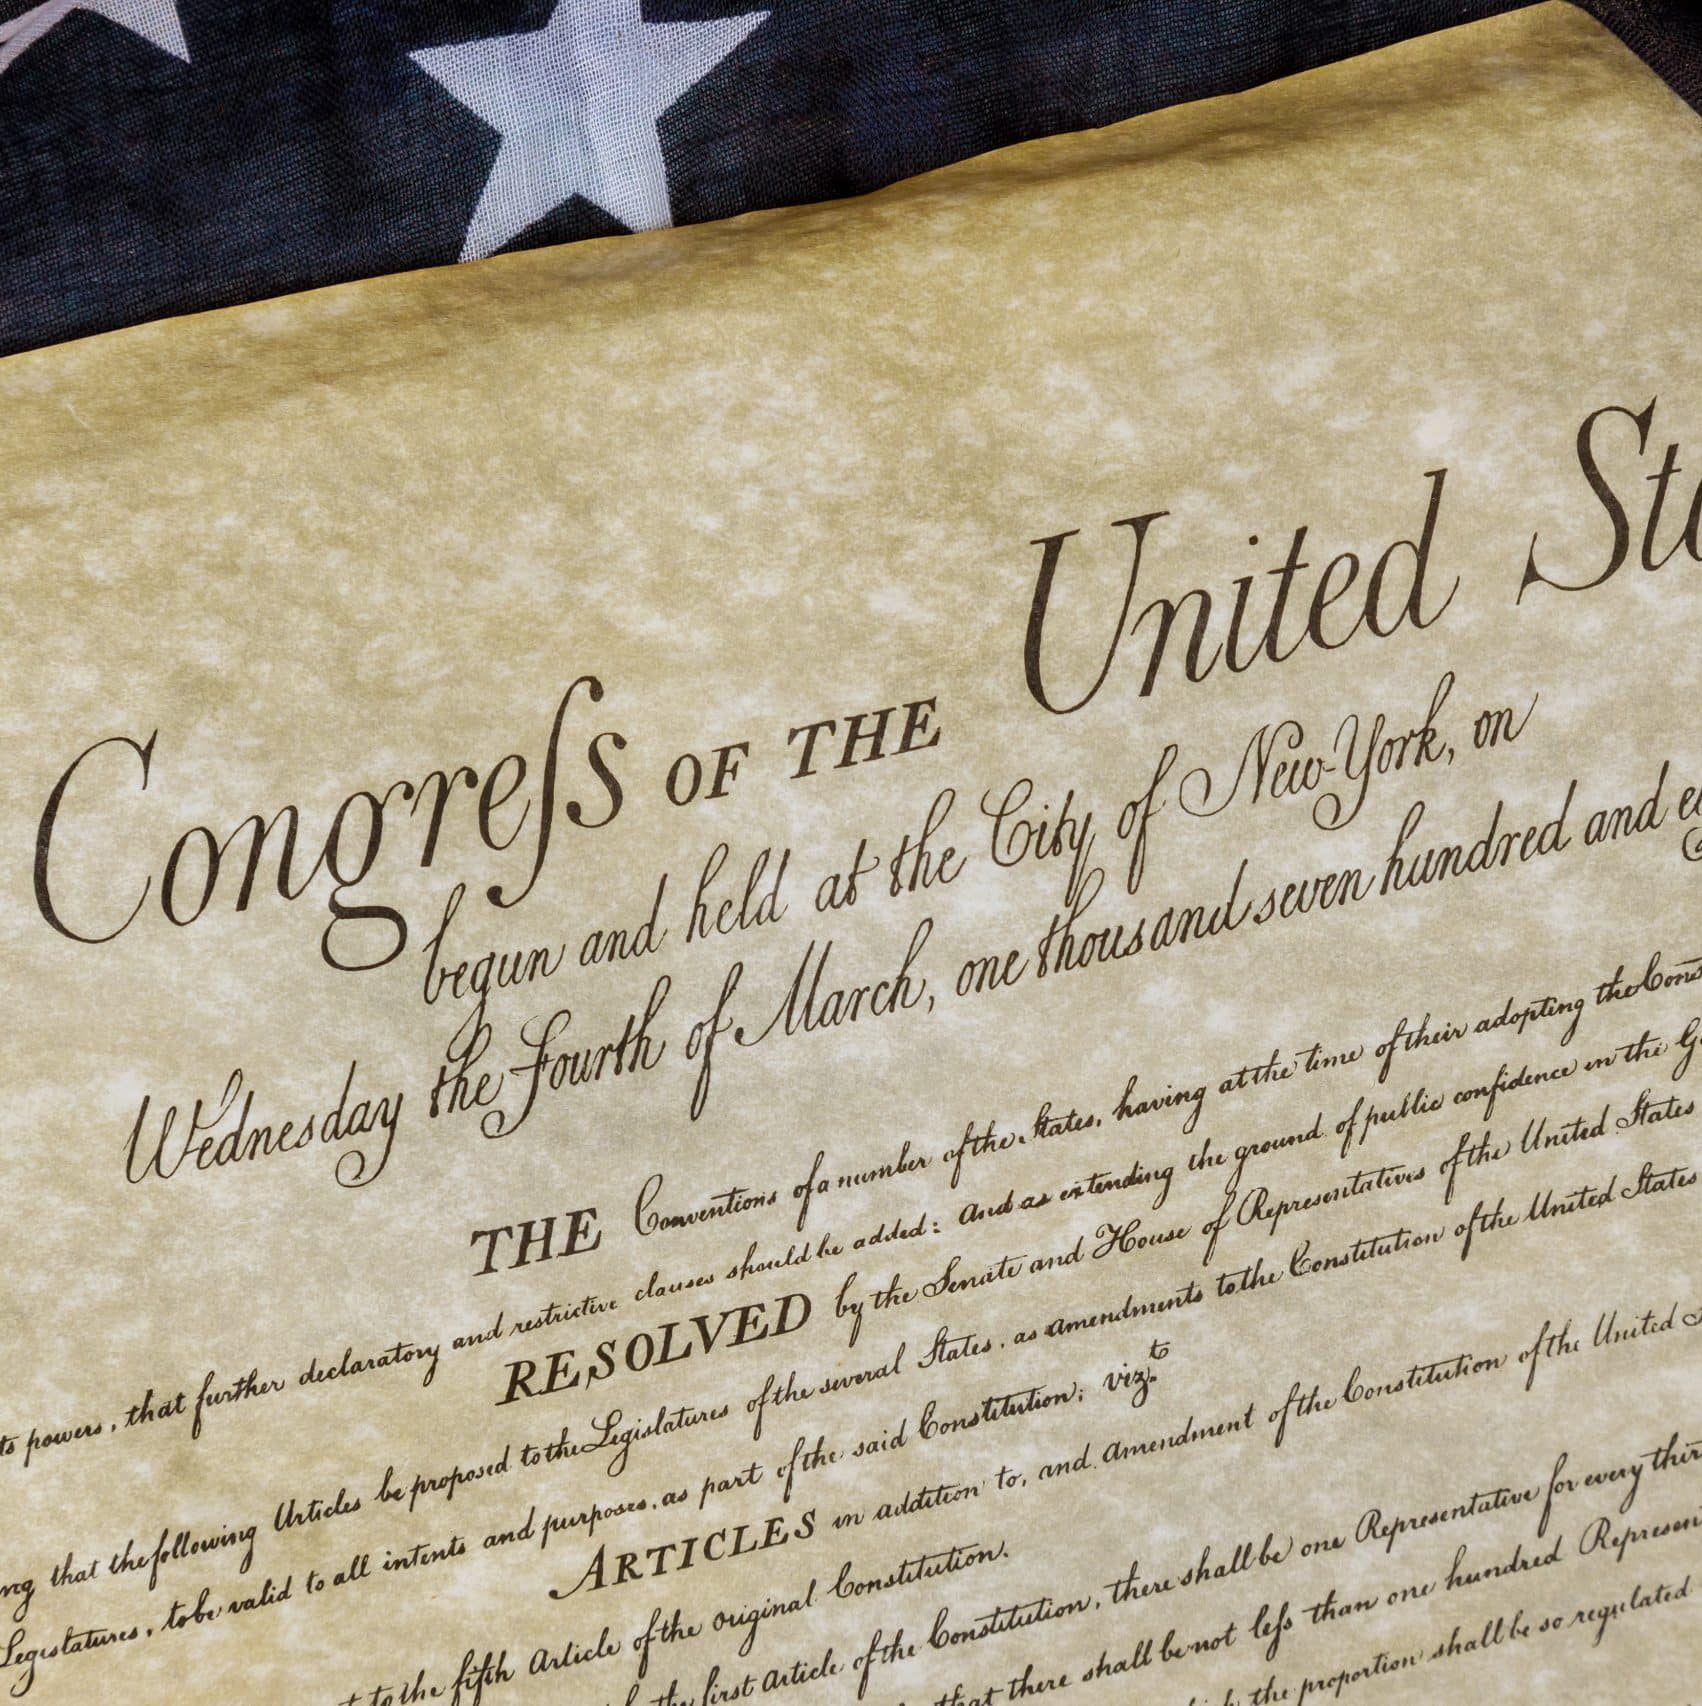 Congreſs OF THE United
begun and held at the City of New-York, on
Wednesday the Fourth of March, one thousand seven hundred and
THE Conventions of a number of the States, having at the time of their adopting the
ts powers, that further declaratory and restrictive clauses should be added: And as extending the ground of public confidence in the
RESOLVED by the Senate and House of Representatives of the United States
ng that the following Articles be proposed to the Legislatures of the several States, as amendments to the Constitution of the United States
Legislatures, to be valid to all intents and purposes, as part of the said Constitution; vizt.
ARTICLES in addition to, and amendment of the Constitution of the United
to the fifth Article of the original Constitution.
the first Article of the Constitution, there shall be one Representative for every
that there shall be not leſs than one hundred
the proportion shall be so regulated